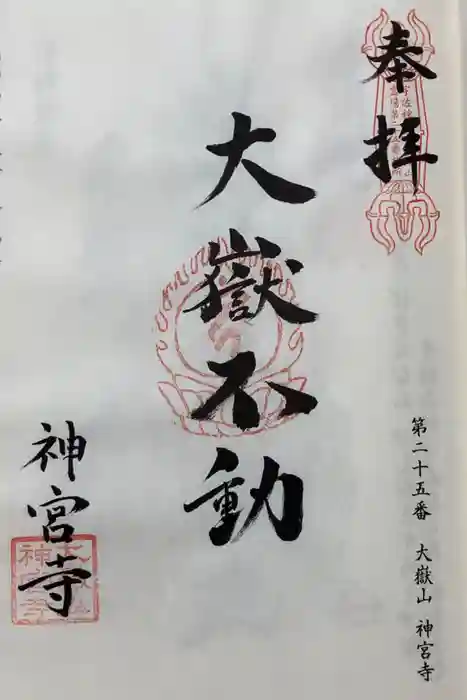 奉拝
大嶽不動
神宮寺
第二十五番 大嶽山 神宮寺